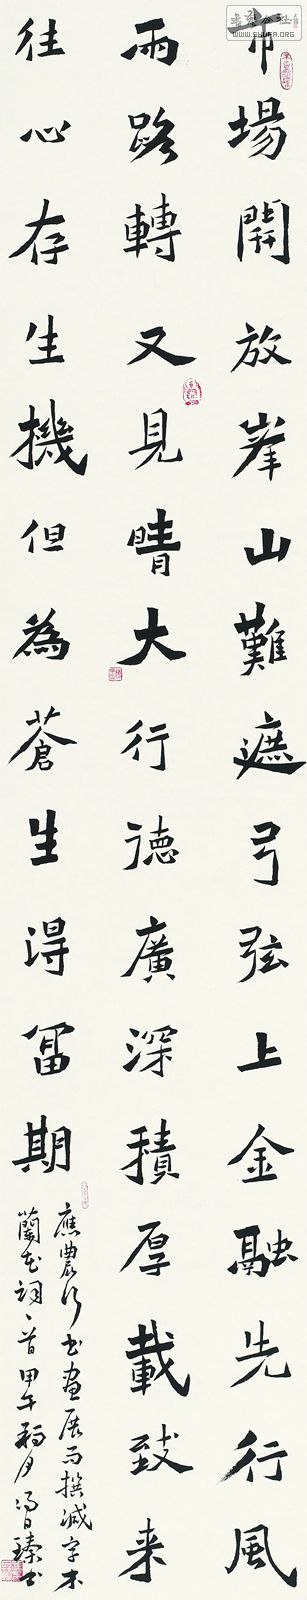 市場開放峯山難遮弓弦上金融先行風
雨路轉又見晴大行德廣深積厚載致来
往心存生機但為蒼生得富期
應農行書畫展而撰减字木
蘭花詞一首甲午 月 日臻书
WWW.SHUFA.ORG